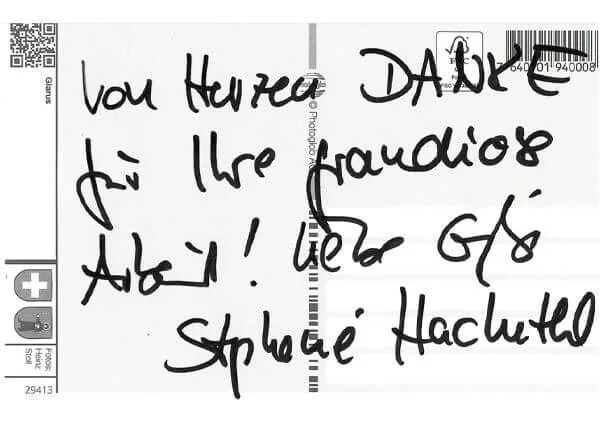 Von Herzen DANKE
für Ihre grandiose
Arbeit! Liebe
Stephanie
Glarus
© Photoglob
FSC
7 640001 940008
Fotos:
Heinz
Stoll
29413